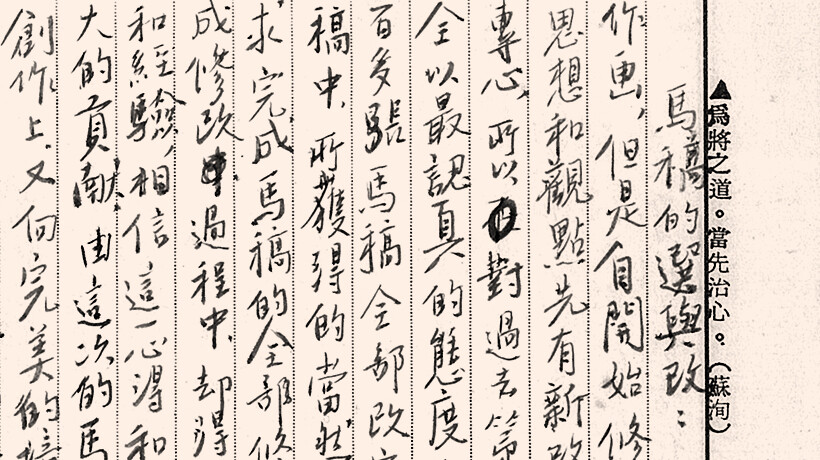 ▲爲將之道。當先治心。（蘇洵）
馬稿的選與改：
作画，但是自開始修
思想和觀點先有新改
專心，所以對過去第
全以最認真的態度
百多張馬稿全部改
稿中，所獲得的當然
求完成馬稿的全部修
成修改過程中，却得
和經驗，相信這一心得和
大的貢獻，由這次的馬
創作上，又向完美的